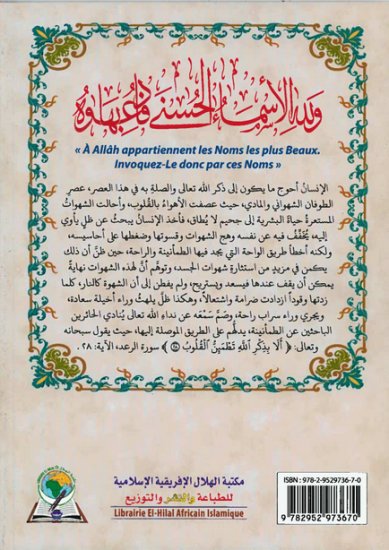 ولله الأسماء الحسنى فادعوه بها
« À Allâh appartiennent les Noms les plus Beaux.
Invoquez-Le donc par ces Noms »
الإنسانُ أحوج ما يكون إلى ذكر الله تعالى والصلة به في هذا العصر، عصر
الطوفان الشهواني والمادي، حيث عصفت الأهواءُ بالقلوب، وأحالت الشهواتُ
المستعرةُ حياةَ البشرية إلى جحيم لا يُطاق، فأخذ الإنسانُ يبحثُ عن ظلٍ يأوي
إليه، يخفِّفُ فيه عن نفسه وهج الشهوات وقسوتها وضغطها على أحاسيسه،
ولكنه أخطأ طريق الواحة التي يجد فيها الطمأنينة والراحة، حين ظنَّ أن ذلك
يكمن في مزيدٍ من استثارة شهوات الجسد، وتوهَّم أنَّ لهذه الشهوات نهايةً
يمكن أن يقف عندها فيسعد ويستريح، ولم يفطن إلى أن الشهوة كالنار، كلما
زدتها وقوداً ازدادت ضرامة واشتعالاً، وهكذا ظلَّ يلهثُ وراء أخيلة سعادة،
ويجري وراء سراب راحة، وصَمَّ سَمْعَه عن نداء الله تعالى يُنادي الحائرين
الباحثين عن الطمأنينة، يدلُّهم على الطريق الموصلة إليها، حيث يقول سبحانه
وتعالى: ﴿ أَلَا بِذِكْرِ اللَّهِ تَطْمَئِنُّ الْقُلُوبُ ﴾ سورة الرعد، الآية: ٢٨.
مكتبة الهلال الإفريقية الإسلامية
للطباعة والنشر والتوزيع
Librairie El-Hilal Africain Islamique
ISBN : 978-2-9529736-7-0
9 782952 973670